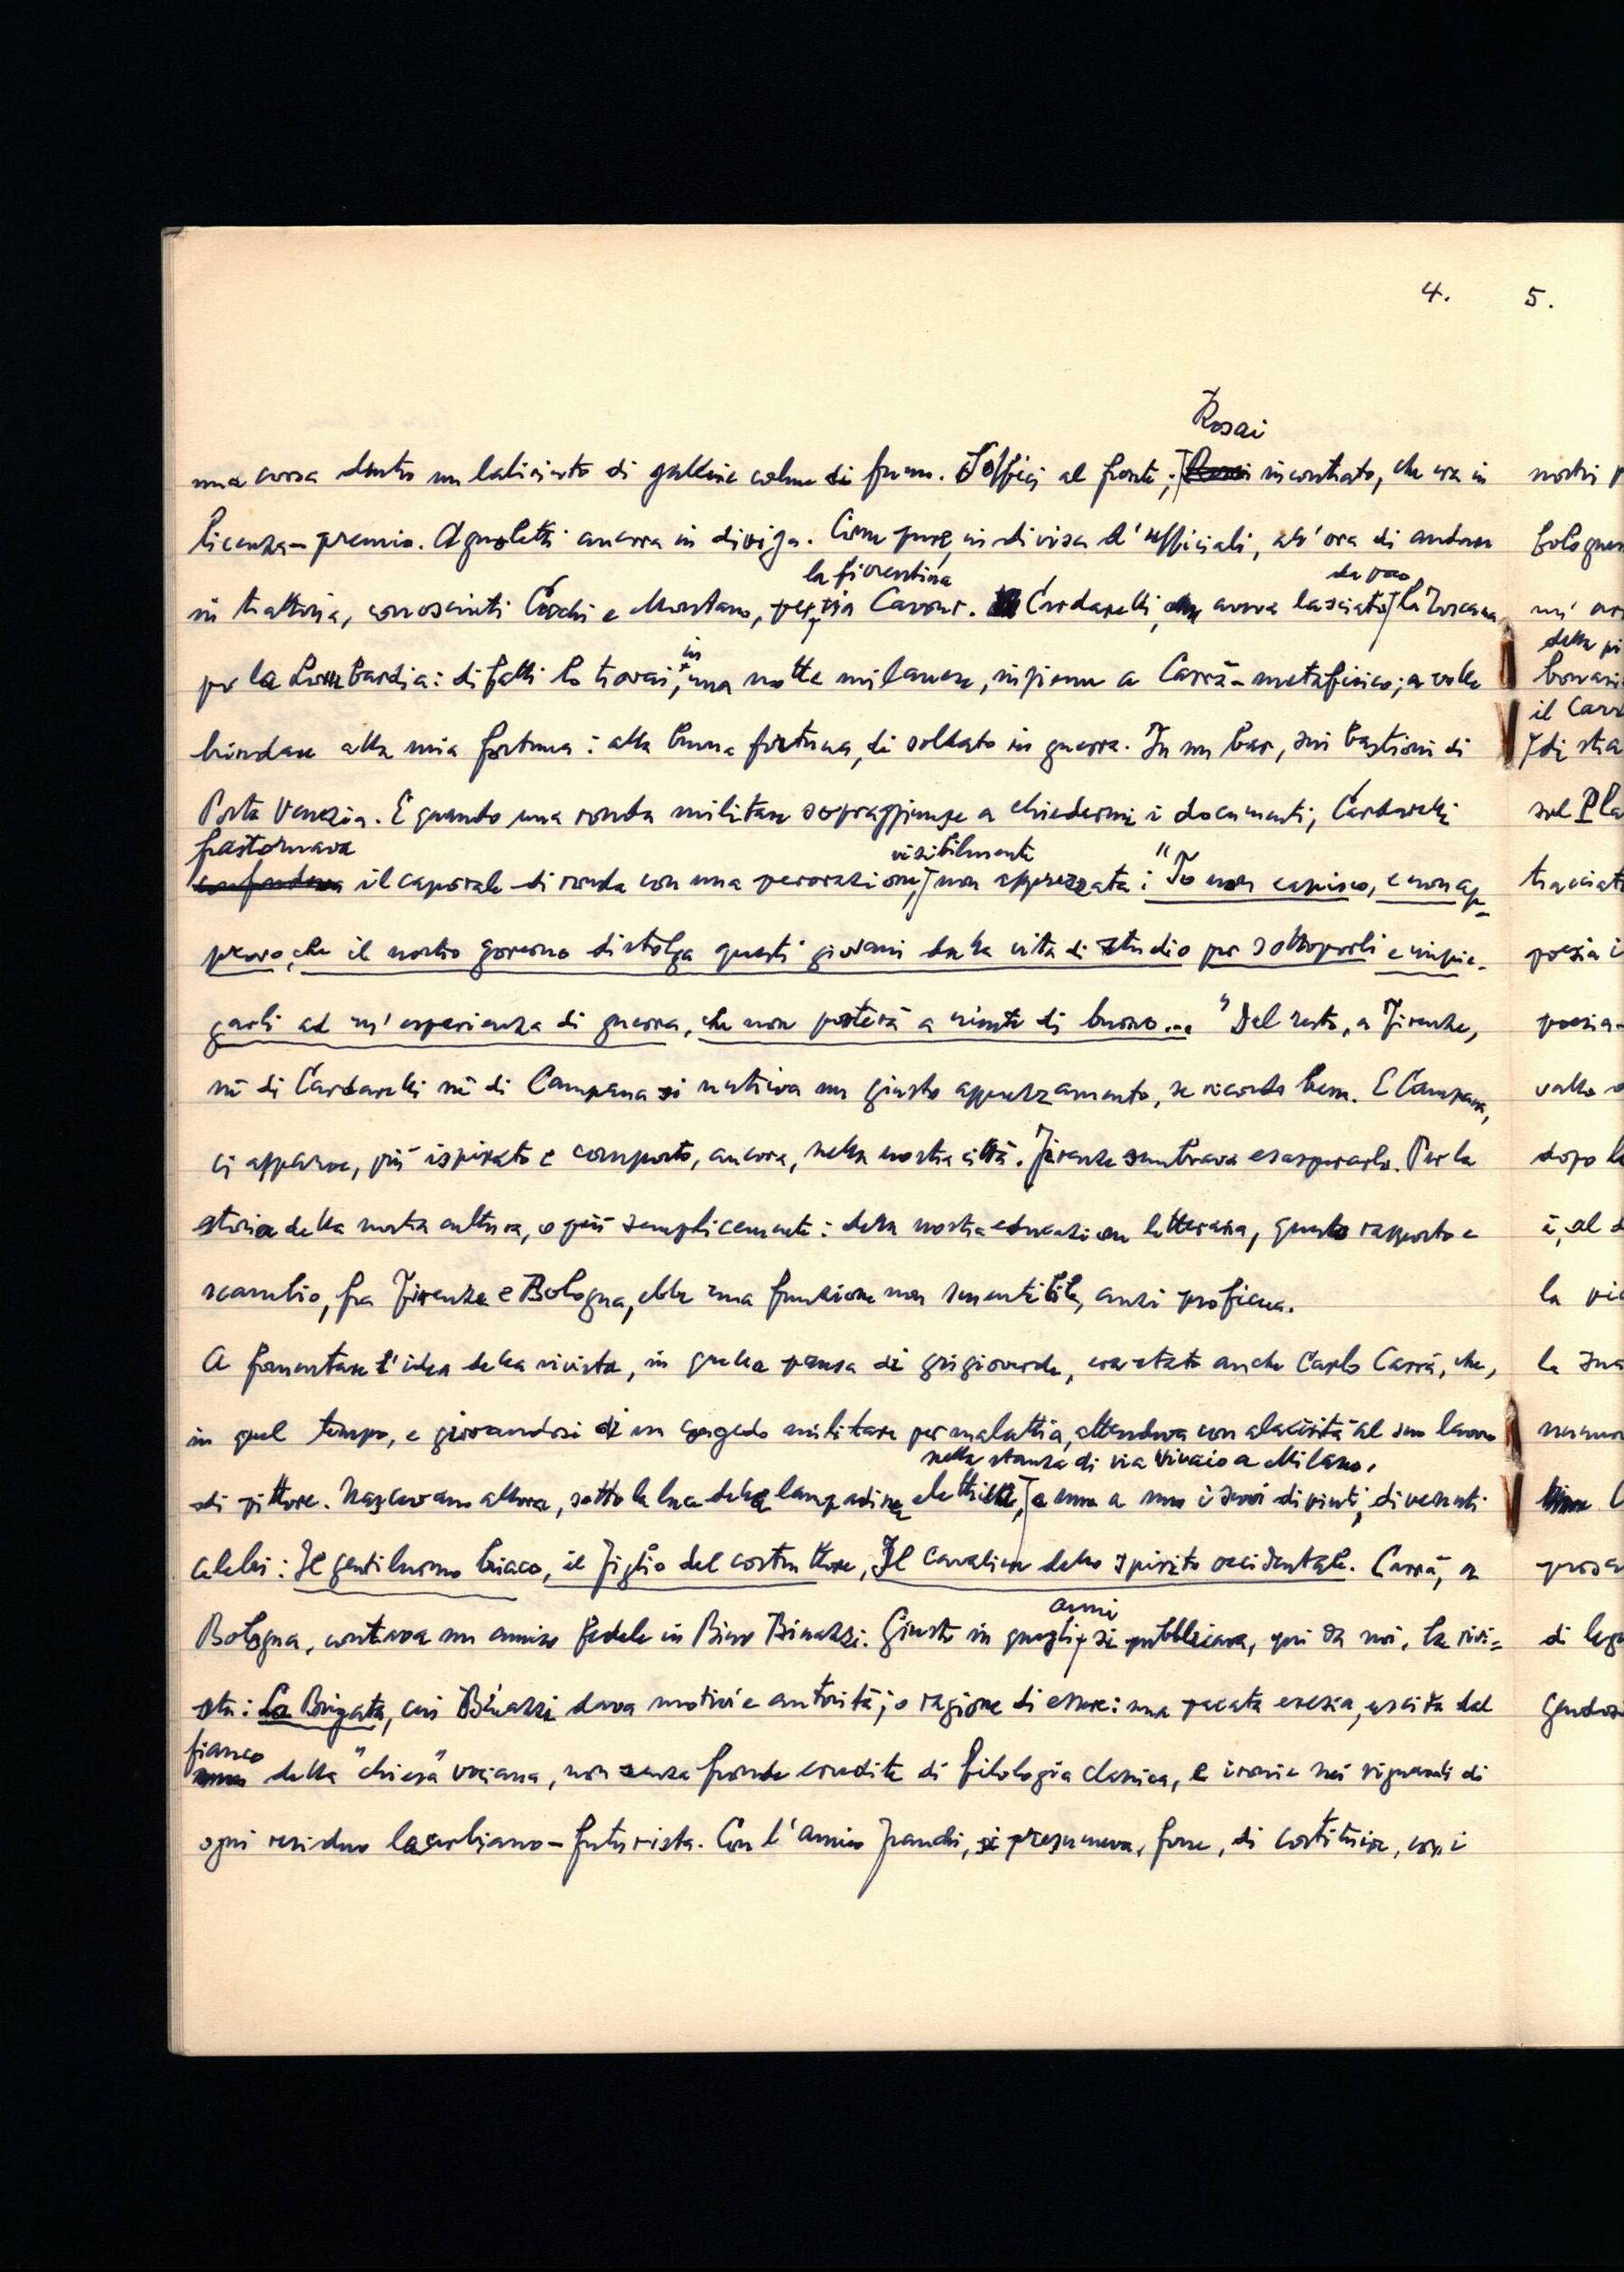 4.
5.
Rosai
una corsa dentro un labirinto di gallerie colme di fumo. Soffici al fronte; incontrato, che era in
licenza-premio. Agnoletti ancora in divisa. Come pure, in divisa d'ufficiali, all'ora di andare
la fiorentina
da poco
in trattoria, conosciuti Cecchi e Montano, per via Cavour. Cardarelli, aveva lasciato la Toscana
in
per la Lombardia: difatti lo trovai, una notte milanese, insieme a Carrà-metafisico; e volle
brindare alla mia fortuna: alla buona fortuna, di soldato in guerra. In un bar, sui bastioni di
Porta Venezia. E quando una ronda militare sopraggiunse a chiedermi i documenti, Cardarelli
frastornava
visibilmente
confondeva il caporale di ronda con una perorazione, non apprezzata: "Io non capisco, e non ap-
provo, che il nostro governo distolga questi giovani dalla vita di studio per sottoporli e impie-
garli ad un'esperienza di guerra, che non porterà a niente di buono..." Del resto, a Firenze,
nè di Cardarelli nè di Campana si nutriva un giusto apprezzamento, se ricordo bene. E Campana,
ci apparve, più ispirato e composto, ancora, nella nostra città. Firenze sembrava esasperarlo. Per la
storia della nostra cultura, o più semplicemente: della nostra educazione letteraria, questo rapporto e
scambio, fra Firenze e Bologna, ebbe una funzione non smentibile, anzi proficua.
A fomentare l'idea della rivista, in quella pausa di grigioverde, era stato anche Carlo Carrà, che,
in quel tempo, e giovandosi di un congedo militare per malattia, attendeva con alacrità al suo lavoro
nella stanza di via Vivaio a Milano,
di pittore. Nascevano allora, sotto la luce della lampadina elettrica, a uno a uno i suoi dipinti, divenuti
celebri: Il gentiluomo briaco, il Figlio del costruttore, Il Cavaliere dello spirito occidentale. Carrà, a
anni
Bologna, contava un amico fedele in Bino Binazzi. Giusto in quegli si pubblicava, qui da noi, la rivi=
sta: La Brigata, cui Binazzi dava motivi e autorità; o ragione di essere: una pacata eresia, uscita dal
fianco
della "chiesa" vociana, non senza fronde erudite di filologia classica, e ironie nei riguardi di
ogni residuo lacerbiano-futurista. Con l'amico Franchi, si presumeva, forse, di costituire, con i
nostri
della
il Carr
di
sul
poesia
poesia-
dopo
la
di